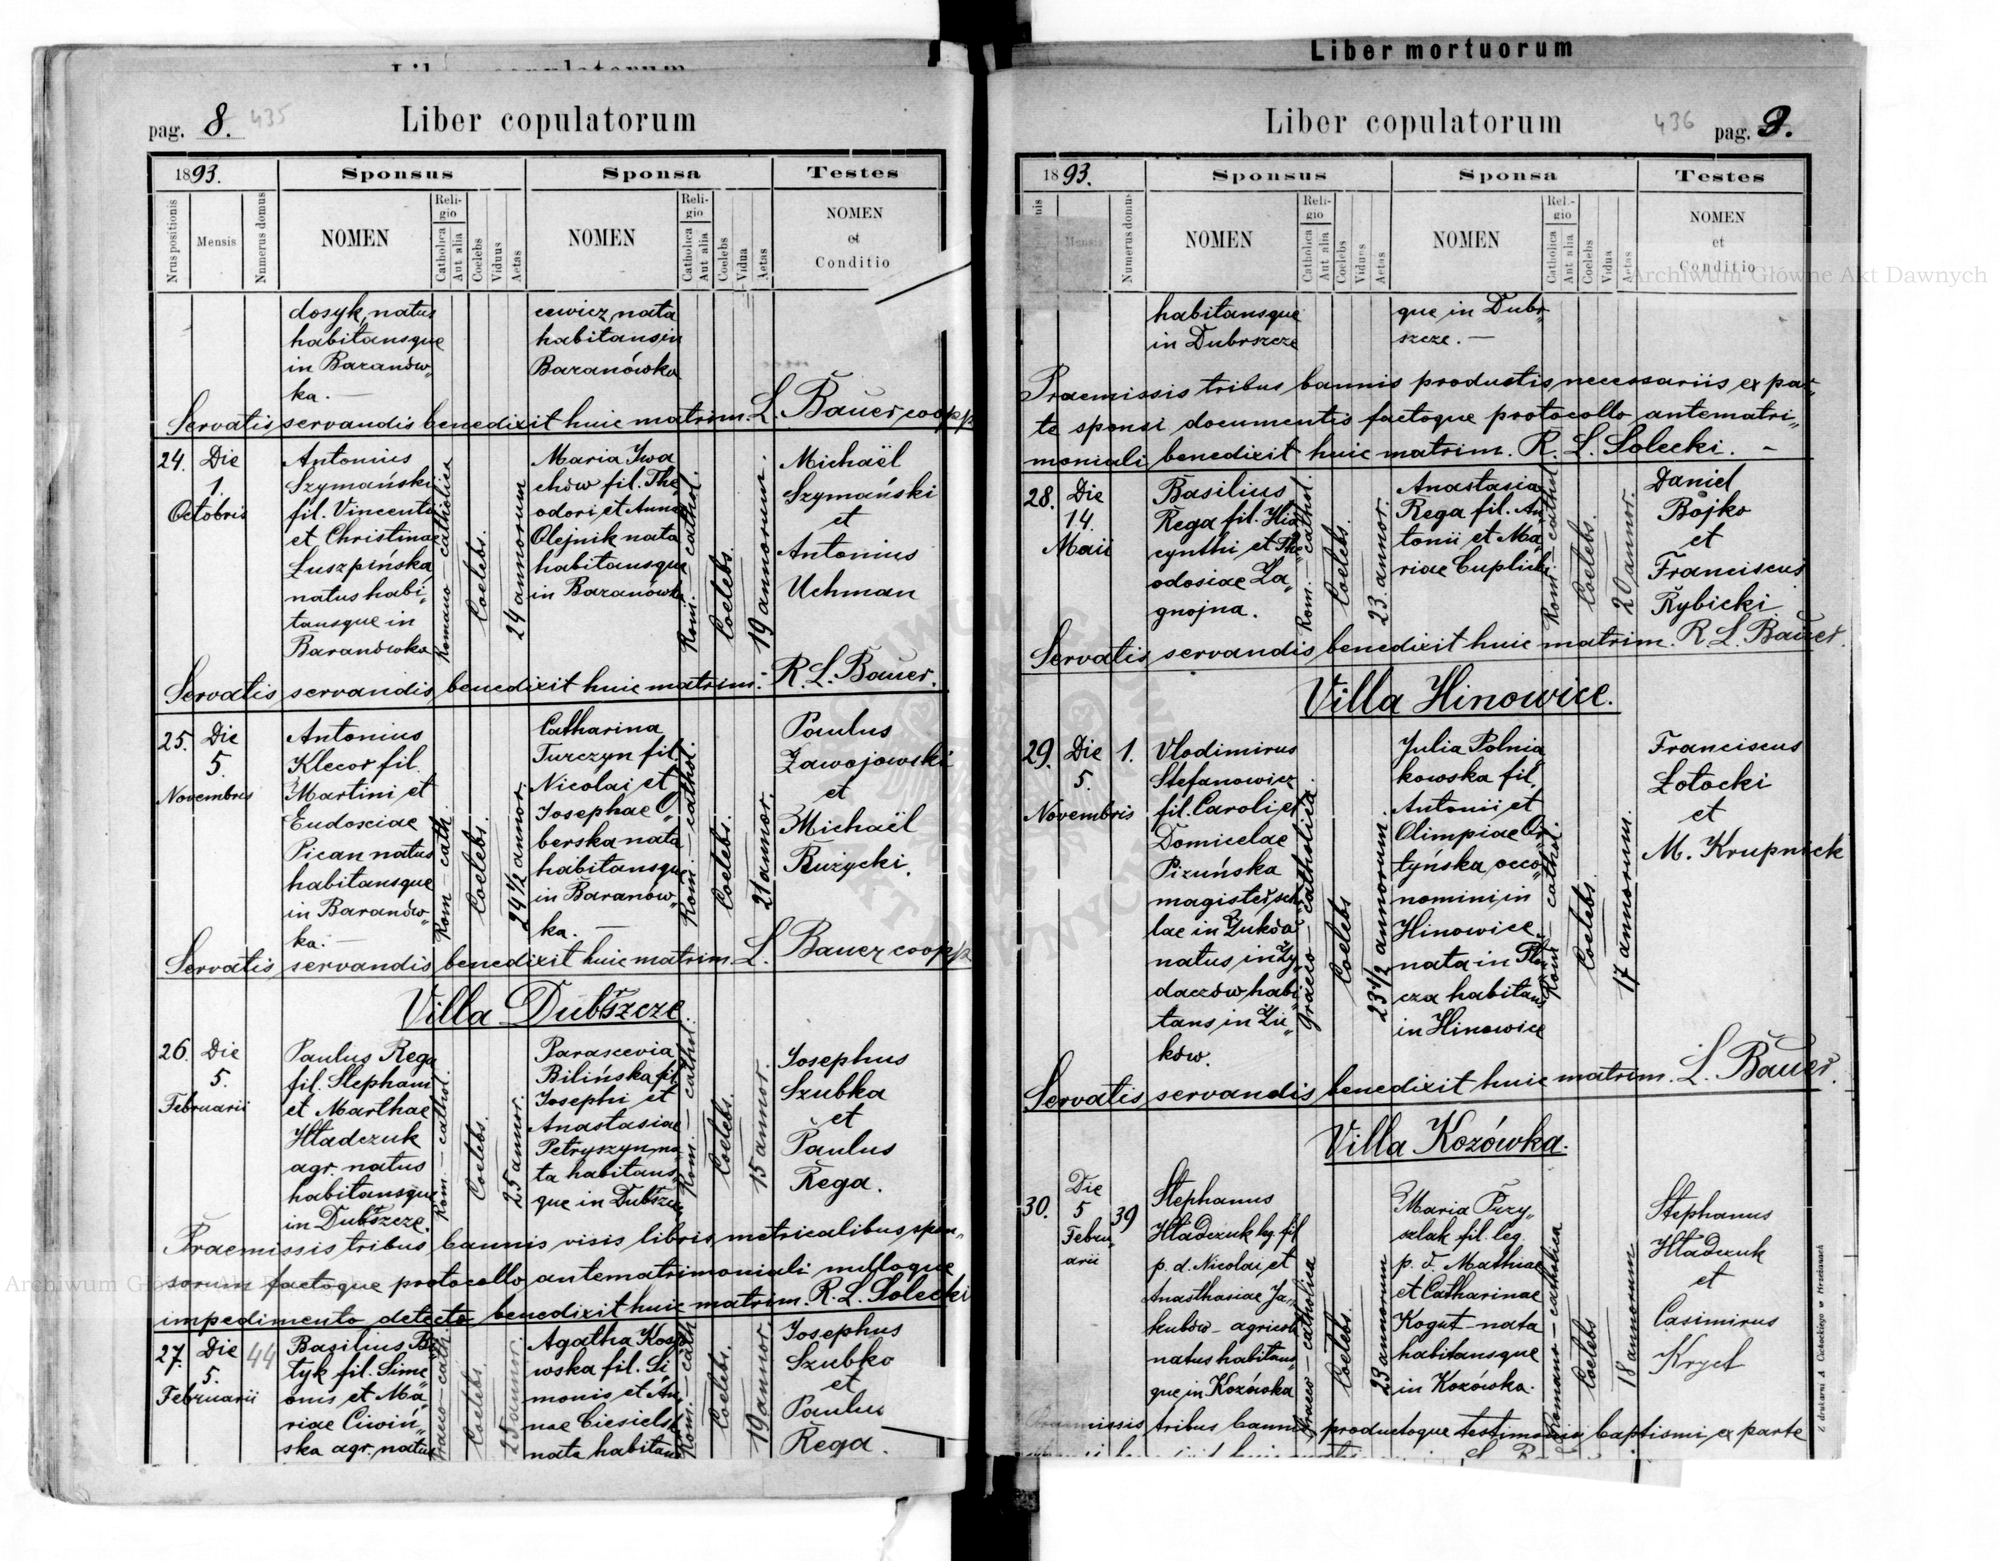 Liber copulatorum
pag. 8. 435
Liber copulatorum
1893.
Sponsus
Sponsa
Testes
Nrus positionis
Mensis
Numerus domus
NOMEN
Religio
Catholica
Aut alia
Coelebs
Viduus
Aetas
NOMEN
Religio
Catholica
Aut alia
Coelebs
Vidua
Aetas
NOMEN
et
Conditio
dosyk, natus
habitansque
in Baranów„
ka. —
cewicz, nata
habitans in
Baranówka
Servatis servandis benedixit huic matrim. L. Bauer coop
24. Die
1.
Octobris
Antonius
Szymański
fil. Vincentii
et Christinae
Łuszpińska
natus habi„
tansque in
Baranówka
Romano – catholica
Coelebs.
24 annorum
Maria Iwa
chów fil. The
odori et Annae
Olejnik nata
habitansque
in Baranówka
Rom. – cathol.
Coelebs.
19 annorum.
Michaël
Szymański
et
Antonius
Uchman
Servatis servandis benedixit huic matrim. R. L. Bauer.
25. Die
5.
Novembris
Antonius
Klecor fil.
Martini et
Eudosciae
Pican natus
habitansque
in Baranów„
ka. —
Rom – cath.
Coelebs.
24 1/2 annor.
Catharina
Turczyn fil.
Nicolai et
Josephae O„
berska nata
habitansque
in Baranów„
ka. —
Rom. – cathol.
Coelebs.
21 annor.
Paulus
Zawojowski
et
Michaël
Rużycki.
Servatis servandis benedixit huic matrim. L. Bauer coop
Villa Dubszcze
26. Die
5.
Februarii
Paulus Rega
fil. Stephani
et Marthae
Hładczuk
agr. natus
habitansque
in Dubszcze.
Rom. – cathol.
Coelebs.
25 annor.
Parascevia
Bilińska fil.
Josephi et
Anastasiae
Petryszyn na„
ta habitans„
que in Dubszcze
Rom. – cathol.
Coelebs.
15 annor.
Josephus
Szubka
et
Paulus
Rega.
Praemissis tribus bannis visis libris metricalibus spon„
sorum factoque protocollo antematrimoniali nulloque
impedimento detecto benedixit huic matrim. R. L. Solecki
27. Die 44
5.
Februarii
Basilius
tyk fil. Sime
onis et Ma„
riae Ciwiń„
ska agr. natus
Graeco – cath
Coelebs.
25 annor.
Agatha
wska fil. Si„
monis et An„
nae Ciesielsk
nata habitans
Rom. – cath
Coelebs.
19 annor.
Josephus
Szubko
et
Paulus
Rega.
Liber mortuorum
Liber copulatorum
436 pag. 9.
1893.
Sponsus
Sponsa
Testes
Mensis
Numerus domus
NOMEN
Religio
Catholica
Aut alia
Coelebs
Viduus
Aetas
NOMEN
Religio
Catholica
Aut alia
Coelebs
Vidua
Aetas
NOMEN
et
Conditio
Archiwum Główne Akt Dawnych
habitansque
in Dubrszcze
que in Dubr„
szcze. —
Praemissis tribus bannis productis necessariis ex par„
te sponsi documentis factoque protocollo antematri„
moniali benedixit huic matrim. R. L. Solecki. –
28. Die
14.
Maii
Basilius
Rega fil. Hia„
cynthi et The„
odosiae Za„
gnojna.
Rom. – cathol.
Coelebs.
23. annor.
Anastasia
Rega fil. An
tonii et Ma„
riae Cuplicki
Rom. – cathol.
Coelebs.
20 annor.
Daniel
Bojko
et
Franciscus
Rybicki
Servatis servandis benedixit huic matrim. R. L. Bauer.
Villa Hinowice.
29. Die 1.
5.
Novembris
Vlodimirus
Stefanowicz
fil. Caroli et
Domicelae
Pizuńska
magister scho
lae in Żuków
natus in Ży„
daczów habi„
tans in Żu„
ków.
Graeco – catholica
Coelebs
23 1/2 annorum.
Julia Polnia
kowska fil.
Antonii et
Olimpiae Or
tyńska occo„
nomini in
Hinowice
nata in
cza habitans
in Hinowice
Rom – cathol.
Coelebs.
17 annorum.
Franciscus
Łotocki
et
M. Krupnick
Servatis servandis benedixit huic matrim. L. Bauer.
Villa Kozówka.
30. Die 39
5
Febru„
arii
Stephanus
Hładczuk leg. fil
p. d. Nicolai et
Anasthasiae Ja„
kubów – agricola
natus habitans„
que in Kozówka
Graeco – catholica
Coelebs.
23 annorum
Maria Przy„
szlak fil. leg.
p. d. Mathiae
et Catharinae
Kogut – nata
habitansque
in Kozówka.
Romano – catholica
Coelebs
18 annorum
Stephanus
Hładczuk
et
Casimirus
Kryct
Praemissis tribus bannis productoque testimonio baptismi ex parte